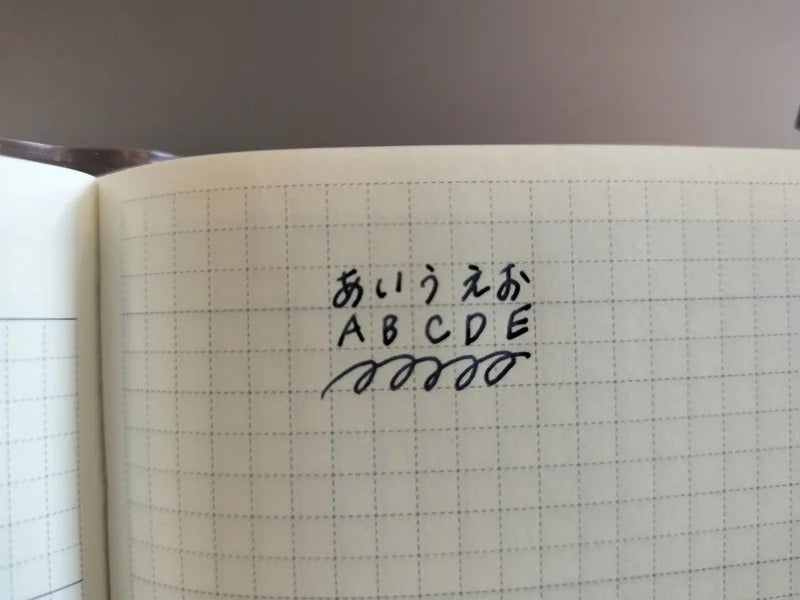 あいうえお
ABCDE